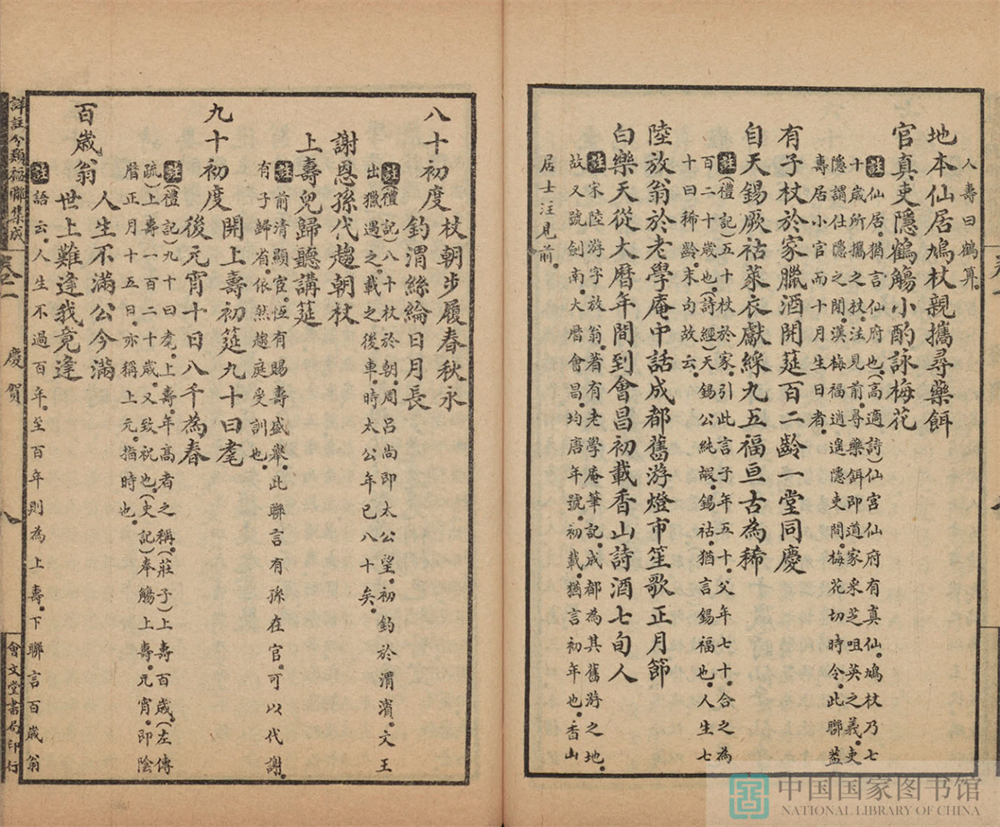 人壽曰鶴算。
地本仙居鳩杖親攜尋藥餌
官真吏隱鶴觴小酌詠梅花
註仙居。猶言仙府也。(高適詩)仙宮仙府有真仙。鳩杖乃七
十歲所攜之杖。注見前。尋藥餌。即道家采芝咀英之義。吏
隱謂仕隱之間。漢梅福逍遙隱吏間。梅花切時令。此聯蓋
壽居小官而十月生日者。
有子杖於家臘酒開筵百二齡一堂同慶
自天錫厥祜萊衣獻綵九五福亘古為稀
註(禮記)五十杖於家。引此言子年五十父年七十。合之為
百二十歲也。(詩經)天錫公純嘏。錫祜。猶言錫福也。人生七
十曰稀齡。末句故云。
陸放翁於老學庵中話成都舊游燈市笙歌正月節
白樂天從大曆年間到會昌初載香山詩酒七旬人
註宋陸游字放翁。著有老學庵筆記。成都為其舊游之地。
故又號劍南。大曆會昌。均唐年號。初載。猶言初年也。香山
居士注見前。
八十初度
杖朝步履春秋永
釣渭絲綸日月長
註(禮記)八十杖於朝。周呂尚即太公望。初釣於渭濱。文王
出獵遇之。載之後車。時太公年已八十矣。
謝恩孫代趨朝杖
上壽兒歸聽講筵
註前清顯宦。恆有賜壽盛舉。此聯言有孫在官。可以代謝。
有子歸省。依然趨庭受訓也。
九十初度
開上壽初筵九十曰耄
後元宵十日八千為春
註(禮記)九十曰耄。上壽。年高者之稱。(莊子)上壽百歲。(左傳
疏)上壽一百二十歲。又致祝也。(史記)奉觴上壽。元宵。即陰
曆正月十五日。亦稱上元。指時也。
百歲翁
人生不滿公今滿
世上難逢我竟逢
註語云。人生不過百年。至百年則為上壽。下聯言百歲翁
詳註分類楹聯集成
卷一
慶賀
八
會文堂書局印行
中国国家图书馆
NATIONAL LIBRARY OF CHINA